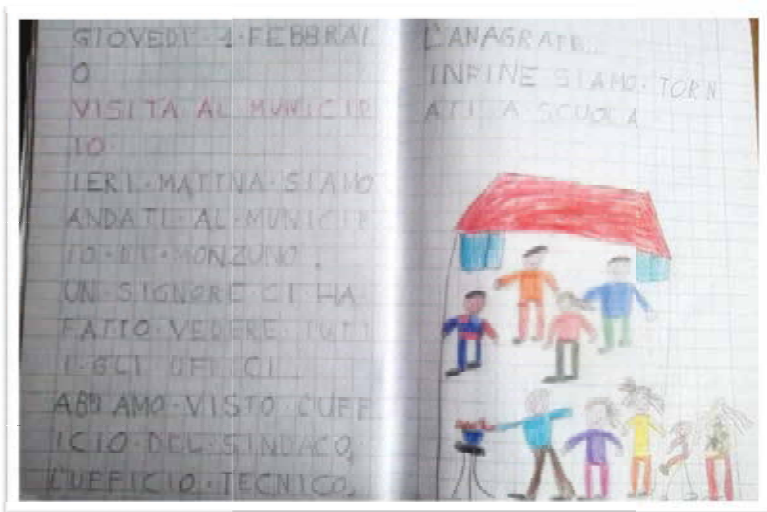 GIOVEDI·1·FEBBRAI
O
VISITA AL MUNICIP
IO
IERI·MATTINA·SIAMO
ANDATI·AL·MUNICIP
IO·DI·MONZUNO.
UN·SIGNORE·CI·HA
FATTO·VEDERE·TUTT
I·GLI·UFFICI
ABBIAMO·VISTO·L'UFF
ICIO·DEL·SINDACO,
L'UFFICIO·TECNICO,
L'ANAGRAFE...
INFINE SIAMO·TORN
ATI·A·SCUOLA